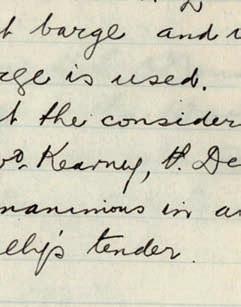 t barge and
rge is used.
t the consider
Kearney, H. De
nanimous in a
lly's tender.